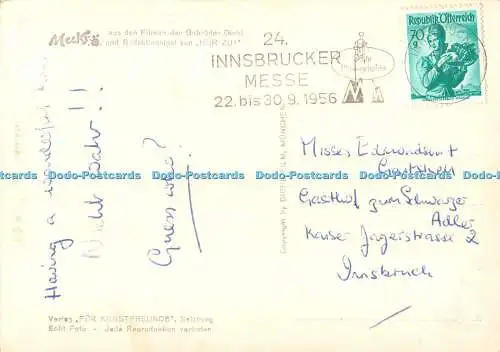 Mecki aus den Filmen der Gebrüder Diehl
und Redaktionsigel von „HÖR ZU!"
24.
INNSBRUCKER
MESSE
22. bis 30. 9. 1956
Republik Österreich
70
g
Having a wonderful
Nicht wahr!!
Guess who?
Copyright by DIEHL-FILM, MÜNCHEN
Misses Edmondson &
Gasthof zum Schwarzer
Adler
Kaiser Jägerstrasse 2
Innsbruck
Dodo-Postcards Dodo-Postcards Dodo-Postcards Dodo-Postcards Dodo-Postcards Dodo-Postcards
Verlag „FÜR KUNSTFREUNDE", Salzburg
Echt Foto - Jede Reproduktion verboten